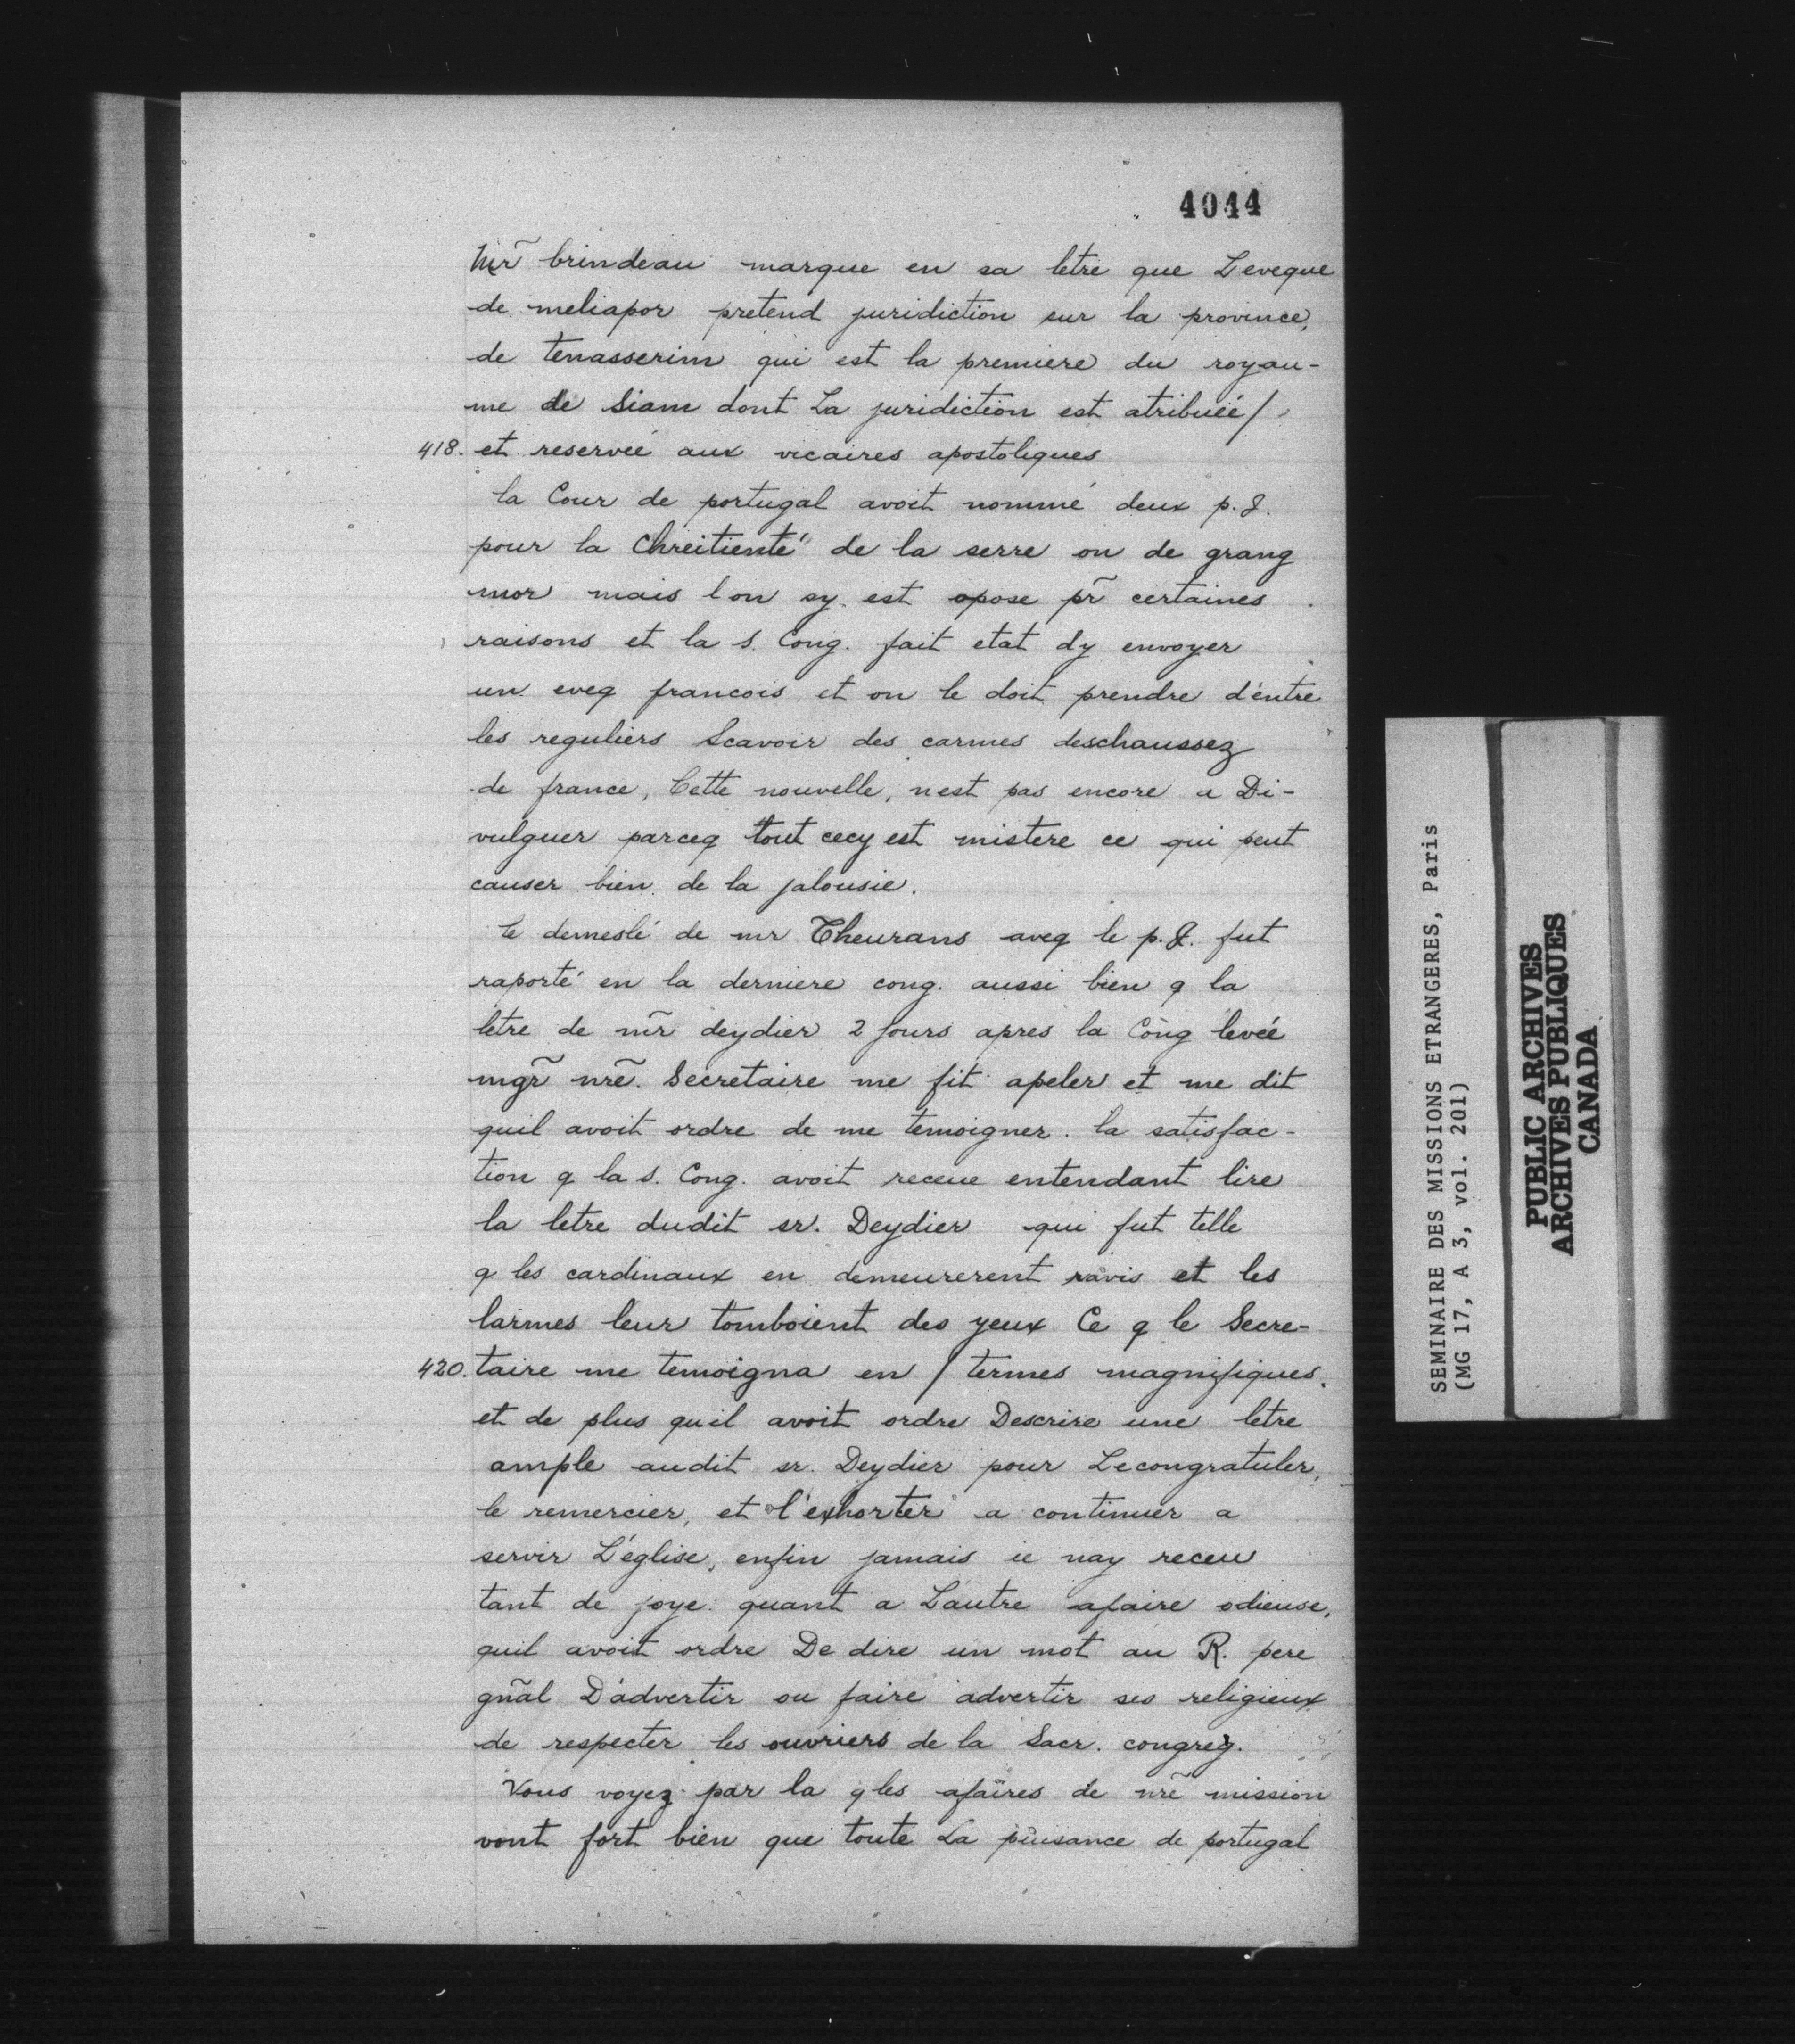 4044
Mr̃ brindeau marque en sa letre que L'eveque
de meliapor pretend juridiction sur la province,
de tenasserim qui est la premiere du royau-
me de Siam dont La juridiction est atribuéé /
418. et reservéé aux vicaires apostoliques
la Cour de portugal avoit nommé deux p. J.
pour la Chreitienté de la serre ou de grang
mor mais l on sy est opose pr̃ certaines
raisons et la s. Cong. fait etat dy envoyer
un eveq francois et on le doit prendre d'entre
les reguliers Scavoir des carmes deschaussez
de france, Cette nouvelle, nest pas encore a Di-
vulguer parceq tout cecy est mistere ce qui peut
causer bien de la jalousie.
le demeslé de mr Cheurans aveq le p. J. fut
raporté en la derniere cong. aussi bien q la
letre de mr̃ deydier 2 jours apres la Cong levée
mgr̃ nrẽ. Secretaire me fit apeler et me dit
quil avoit ordre de me temoigner. la satisfac-
tion q la s. Cong. avoit receue entendant lire
la letre dudit sr. Deydier qui fut telle
q les cardinaux en demeurerent ravis et les
larmes leur tomboient des yeux Ce q le Secre-
420. taire me temoigna en / termes magnifiques.
et de plus quil avoit ordre Descrire une letre
ample audit sr. Deydier pour Lecongratuler,
le remercier, et l'exhorter a continuer a
servir L'église, enfin jamais ie nay receu
tant de joye. quant a L'autre afaire odieuse,
quil avoit ordre De dire un mot au R. pere
gñal D'advertir ou faire advertir ses religieux
de respecter les ouvriers de la Sacr. congreg.
Vous voyez par la q les afaires de nrẽ mission
vont fort bien que toute La puisance de portugal
SEMINAIRE DES MISSIONS ETRANGERES, Paris
(MG 17, A 3, vol. 201)
PUBLIC ARCHIVES
ARCHIVES PUBLIQUES
CANADA